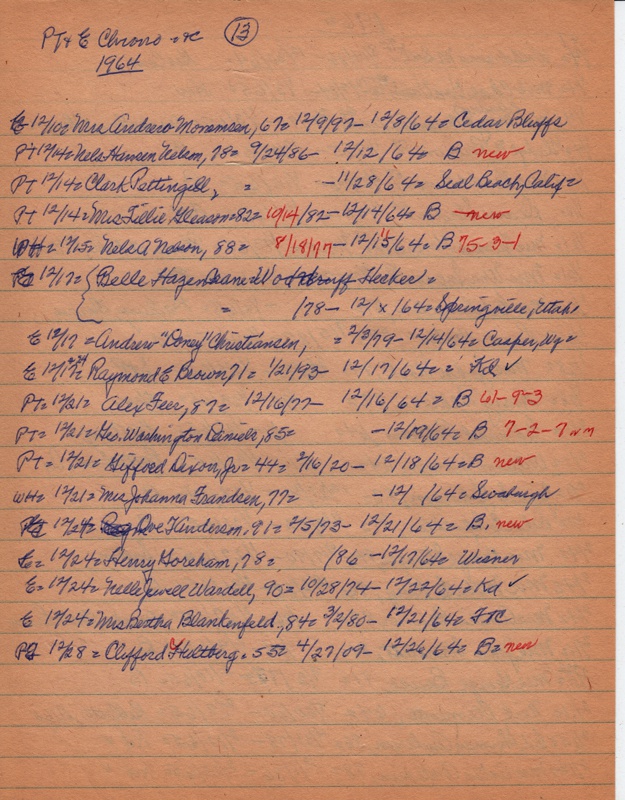 PT & E Chrono - etc (13)
1964
E 12/10= Mrs Andrew Monemsen, 67= 12/9/97- 12/8/64= Cedar Bluffs
PT 12/14= Nels Hansen Nelson, 78= 9/24/86- 12/12/64= B new
PT 12/14= Clark Pettingill, = -11/28/64= Seal Beach, Calif=
PT 12/14= Mrs Tillie Gleason=82= 10/14/82-12/14/64= B new
WH= 12/15= Nels A Nelson, 88= 8/18/77- 12/15/64= B 75-3-1
12/17= Belle Hazen Deane Woodruff Hecker=
= /78- 12/x/64= Springville, Utah
E 12/17= Andrew "Doney" Christiansen, = 2/3/79- 12/14/64= Casper, Wy=
E 12/17= Raymond E Brown, 71= 1/21/93- 12/17/64= = Kd ✓
PT= 12/21= Alex Feer, 87= 12/16/77- 12/16/64= B 61-9-3
PT= 12/21= Geo. Washington Daniels, 85= -12/19/64= B 7-2-7
PT= 12/21= Gifford Dixon, Jr= 44= 3/16/20- 12/18/64= B new
WH= 12/21= Mrs Johanna Frandsen, 77= -12/ /64=
12/24= Ove Anderson. 91= 2/5/73- 12/21/64= B. new
E= 12/24= Henry Goreham, 78= /86 -12/17/64= Wisner
E= 12/24= Nelle Jewell Wardell, 90= 10/28/74- 12/22/64= Kd ✓
E 12/24= Mrs Bertha Blankenfeld, 84= 3/2/80- 12/21/64= FtC
12/28= Clifford Hultberg. 55= 4/27/09- 12/26/64= B= new